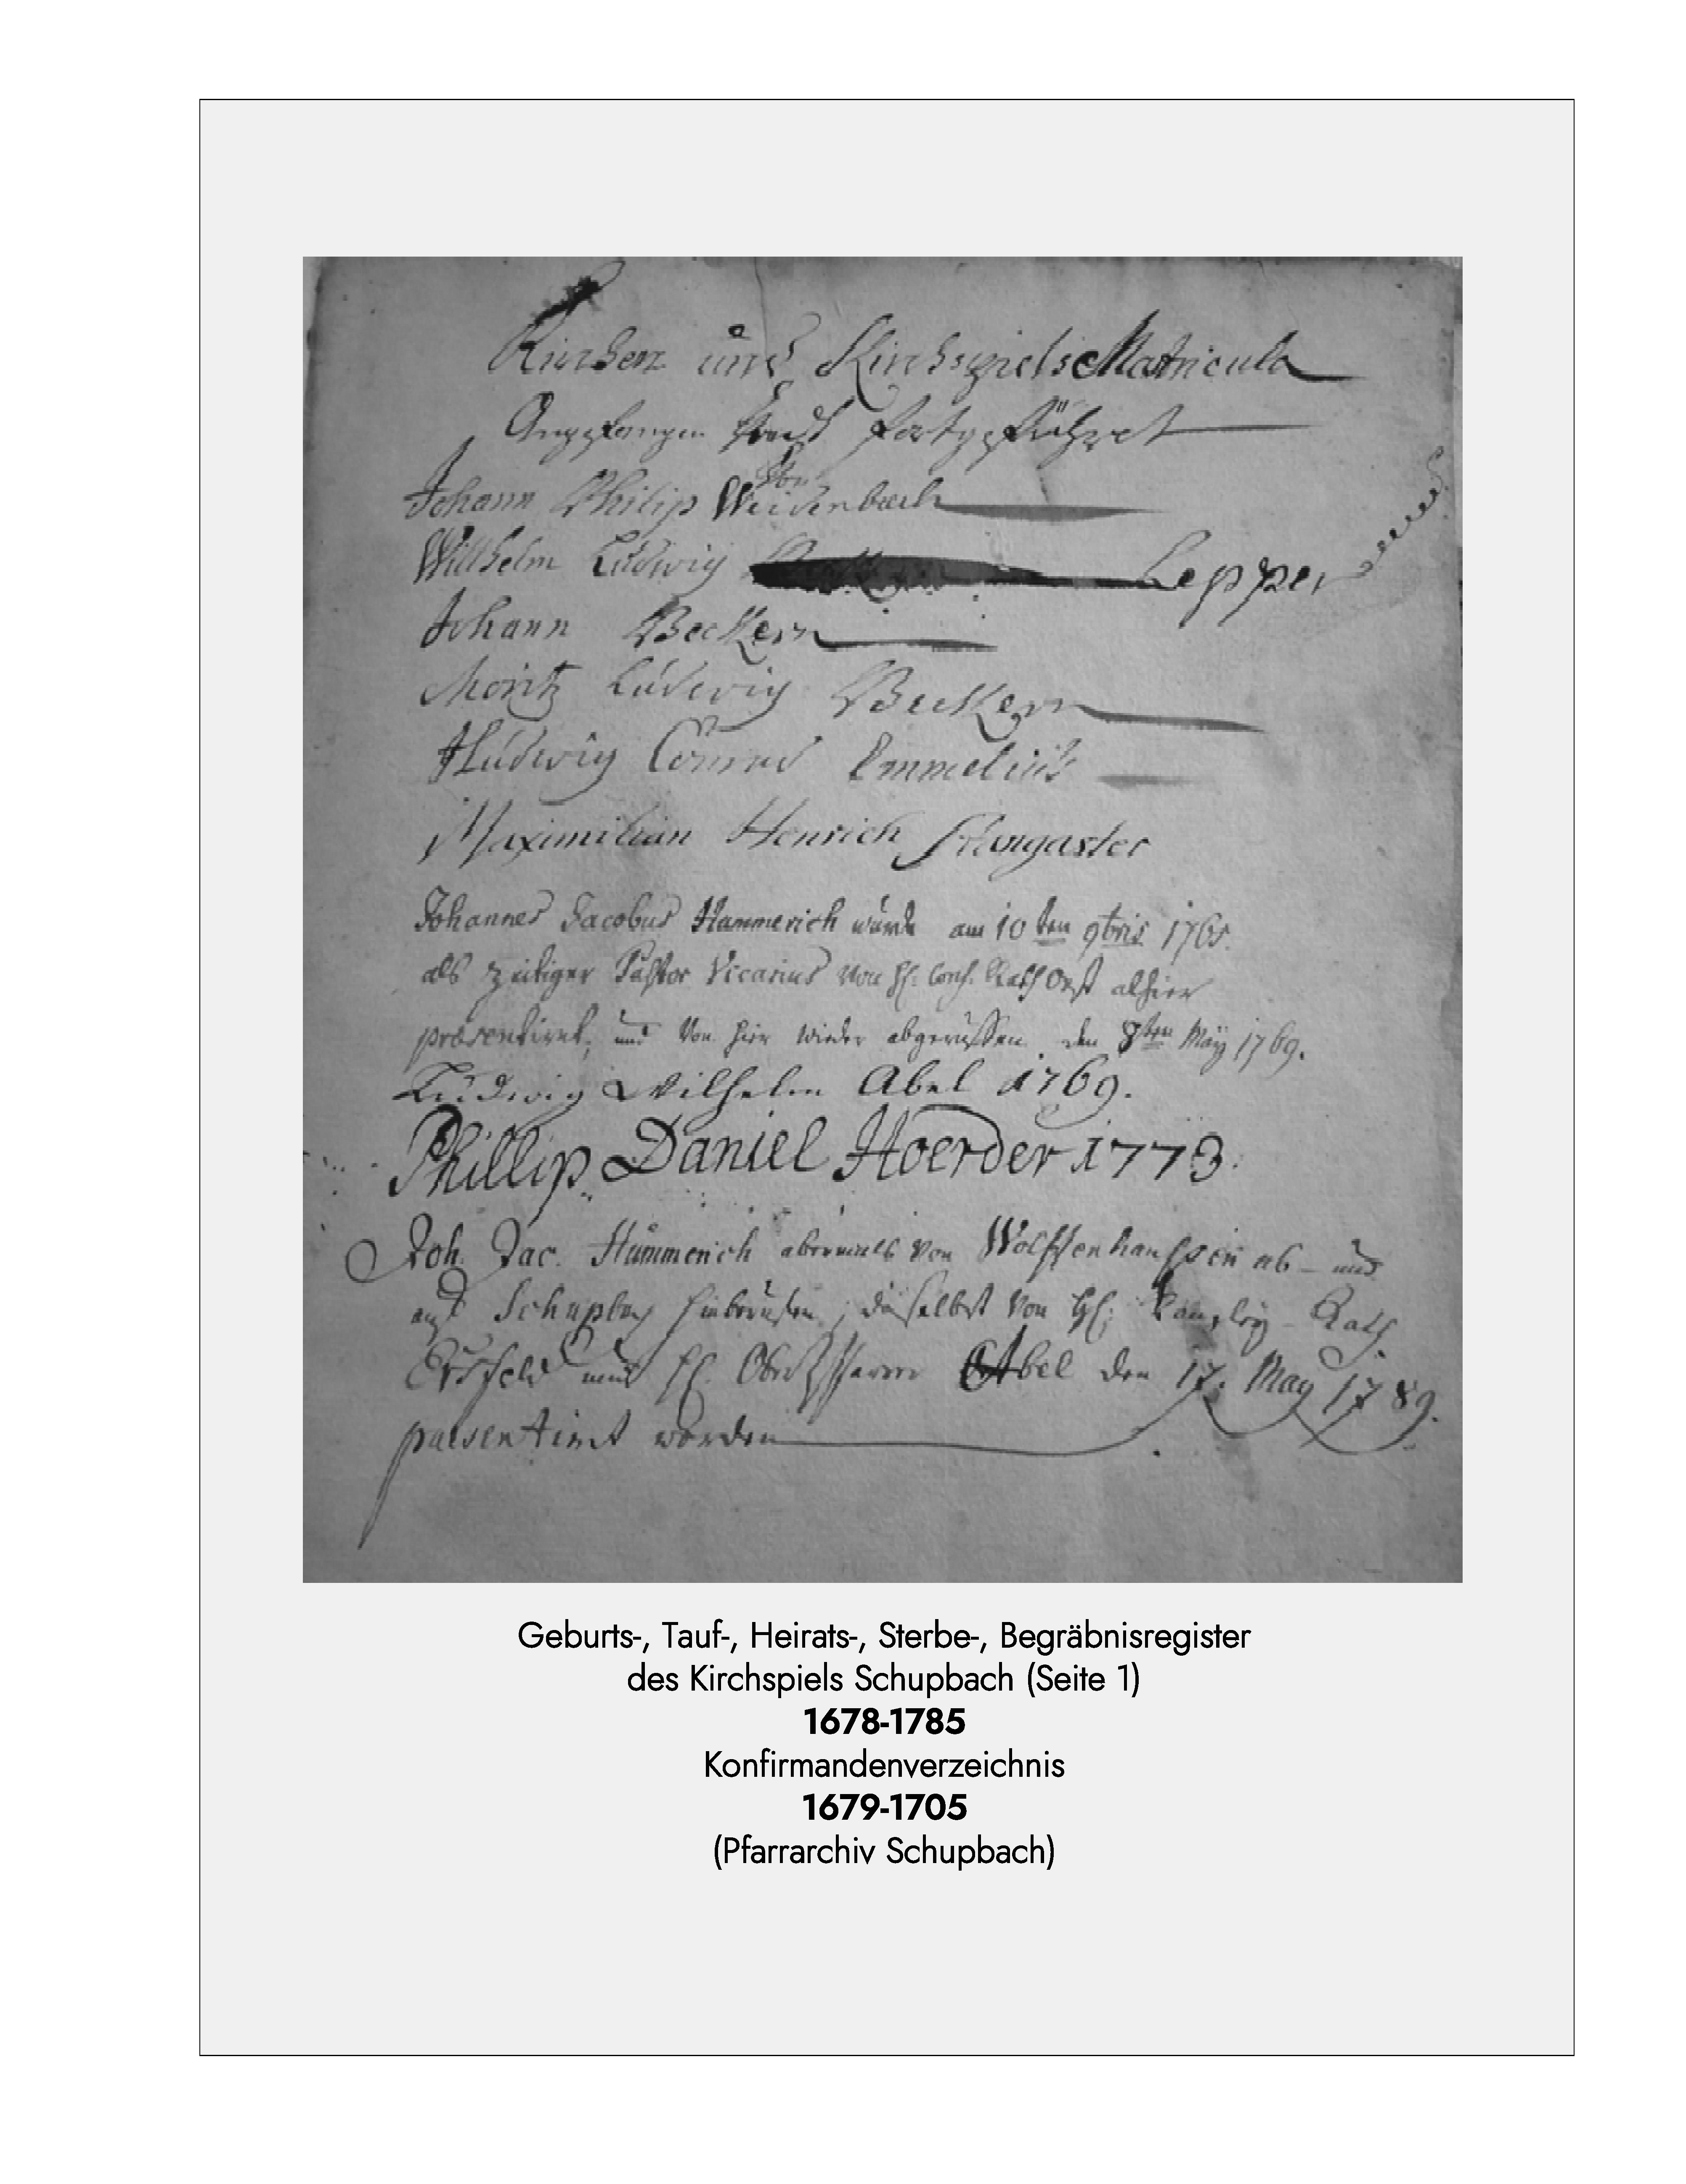 Kirchen und Kirchspiels Matricula
Angefangen undt fortgeführet
Von
Johann Philip Weidenbach
Willhelm Ludwig Lepper
Johann Beckern
Moritz Ludwig Beckern
Ludwig Conrad Emmelius
Maximilian Henrich
Johannes Jacobus Hammerich wurde am 10ten 9bris 1765.
als zeitiger Pastor Vicarius von H. Cons. Rath alhier
præsentiret, und von hier wieder abgeruffen den 8ten May 1769.
Ludwig Wilhelm Abel 1769.
Phillip Daniel Hoerder 1773.
Joh. Jac. Hammerich abermals von Wolffenhaussen ab- und
auf Schupbach hinberufen, daselbst von H. Canzley-Rath
und H. Oberpfarrer Abel den 17. May 1789.
præsentirt worden
Geburts-, Tauf-, Heirats-, Sterbe-, Begräbnisregister
des Kirchspiels Schupbach (Seite 1)
1678-1785
Konfirmandenverzeichnis
1679-1705
(Pfarrarchiv Schupbach)